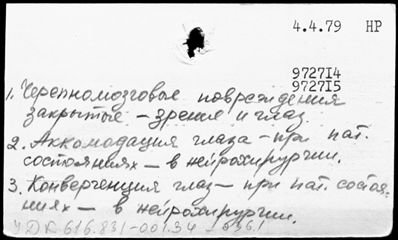 4.4.79 НР
9727I4
9727I5
1. Черепномозговые повреждения
закрытые – зрение и глаз.
2. Аккомодация глаза – при пат.
состояниях – в нейрохирургии.
3. Конвергенция глаз – при пат. состоя-
ниях – в нейрохирургии.
УДК 616.831-001.34 – 036.1